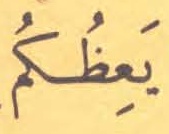 يَعِظُكُمُ